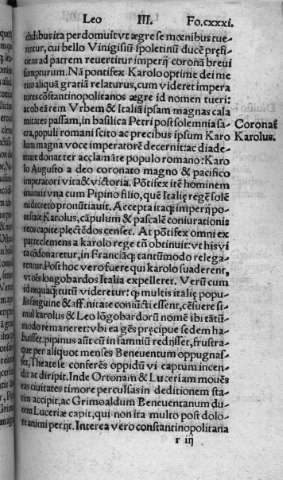 Leo III. Fo.cxxxi.
cidibus ita perdomuit vt ægre se mœnibus tue-
rentur, cui bello Vinigisiū spoletinū ducē præfi-
ciens ad patrem reuertitur imperij coronā breui
sumpturum. Nā pontifex Karolo optime de ime
rito aliquā gratiā relaturus, cum videret impera
tores cōstantinopolitanos ægre id nomen tueri:
ac ob eā rem Vrbem & Italiā ipsam magnas cala
mitates passam, in basilica Petri post solemnia sa-
Coronat
cra, populi romani scito ac precibus ipsum Karo
Karolus.
lum magna voce imperatorē decernit: ac diade-
mate donat ter acclamāte populo romano: Karo
lo Augusto a deo coronato magno & pacifico
imperatori vita & victoria. Pōtifex itē hominem
inunxit vna cum Pipino filio, quē Italiæ regē solē
ni decreto pronūtiauit. Accepta itaq imperij po-
testate Karolus, cāpulum & pascalē coniurationis
reos capite plectēdos censet. At pōtifex omni ex
parte clemens a karolo rege tū obtinuit: vt his vi
ta cōdonaretur, in Franciāq; tantūmodo relega-
rentur. Post hoc vero fuere qui karolo suaderent,
vt oēs longobardos Italia expelleret. Verū cum
id neq̃quā tutū videretur: q multis italię popu-
lis sanguine & affinitate coniūcti essent, cēsuere si
mul karolus & Leo lōgobardorū nomē ibi tātū-
modo remanere: vbi ea gēs præcipue sedem ha-
buisset. pipinus aūt cū in samniū redijsset, frustra-
que per aliquot menses Beneuentum oppugnas-
set, Theate se conferēs oppidū vi captum incen-
dit ac diripit. Inde Ortonam & Luceriam mouēs
eas ciuitates timore perculsas in deditionem sta-
tim accipit, ac Grimoaldum Beneuentanum du-
cem Luceriæ capit, qui non ita multo post dolo-
re animi perijt. Interea vero constantinopolitana
r iij